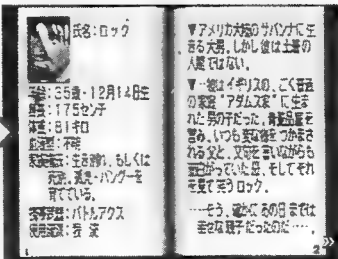 氏名:ロック
年齢:35歳・12月14日生
身長:175センチ
体重:81キロ
血液型:不明
家族構成:生き別れ、もしくは
死別。孤児・バングーを
育てている。
使用武器:バトルアクス
使用流派:我流
1
▼アメリカ大陸のサバンナに生
きる大男。しかし彼は土着の
人間ではない。
▼…彼はイギリスの、ごく普通
の家庭“アダムス家”に生ま
れた男の子だった。骨董品屋を
営み、いつも変な物をつかまさ
れる父と、文句を言いながらも
いた母、そしてそれ
を見て笑うロック。
……そう、確かにあの日までは
幸せな親子だったのだ……。
2